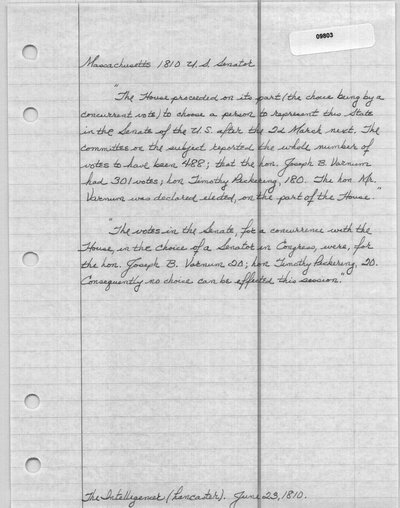 09803
Massachusetts 1810 U.S. Senator
"The House proceeded on its part (the choice being by a
concurrent vote) to choose a person to represent this State
in the Senate of the U.S. after the 2d March next. The
committee on the subject reported the whole number of
votes to have been 488; that the hon. Joseph B. Varnum
had 301 votes; hon. Timothy Pickering, 180. The hon. Mr.
Varnum was declared elected, on the part of the House."
"The votes in the Senate, for a concurrence with the
House, in the choice of a Senator in Congress, were, for
the hon. Joseph B. Varnum 20; hon. Timothy Pickering, 20.
Consequently no choice can be effected this session."
The Intelligencer (Lancaster). June 23, 1810.